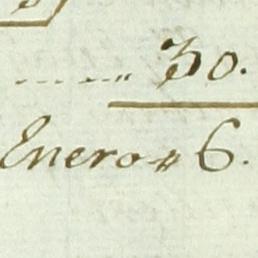 30.
Enero " 6.